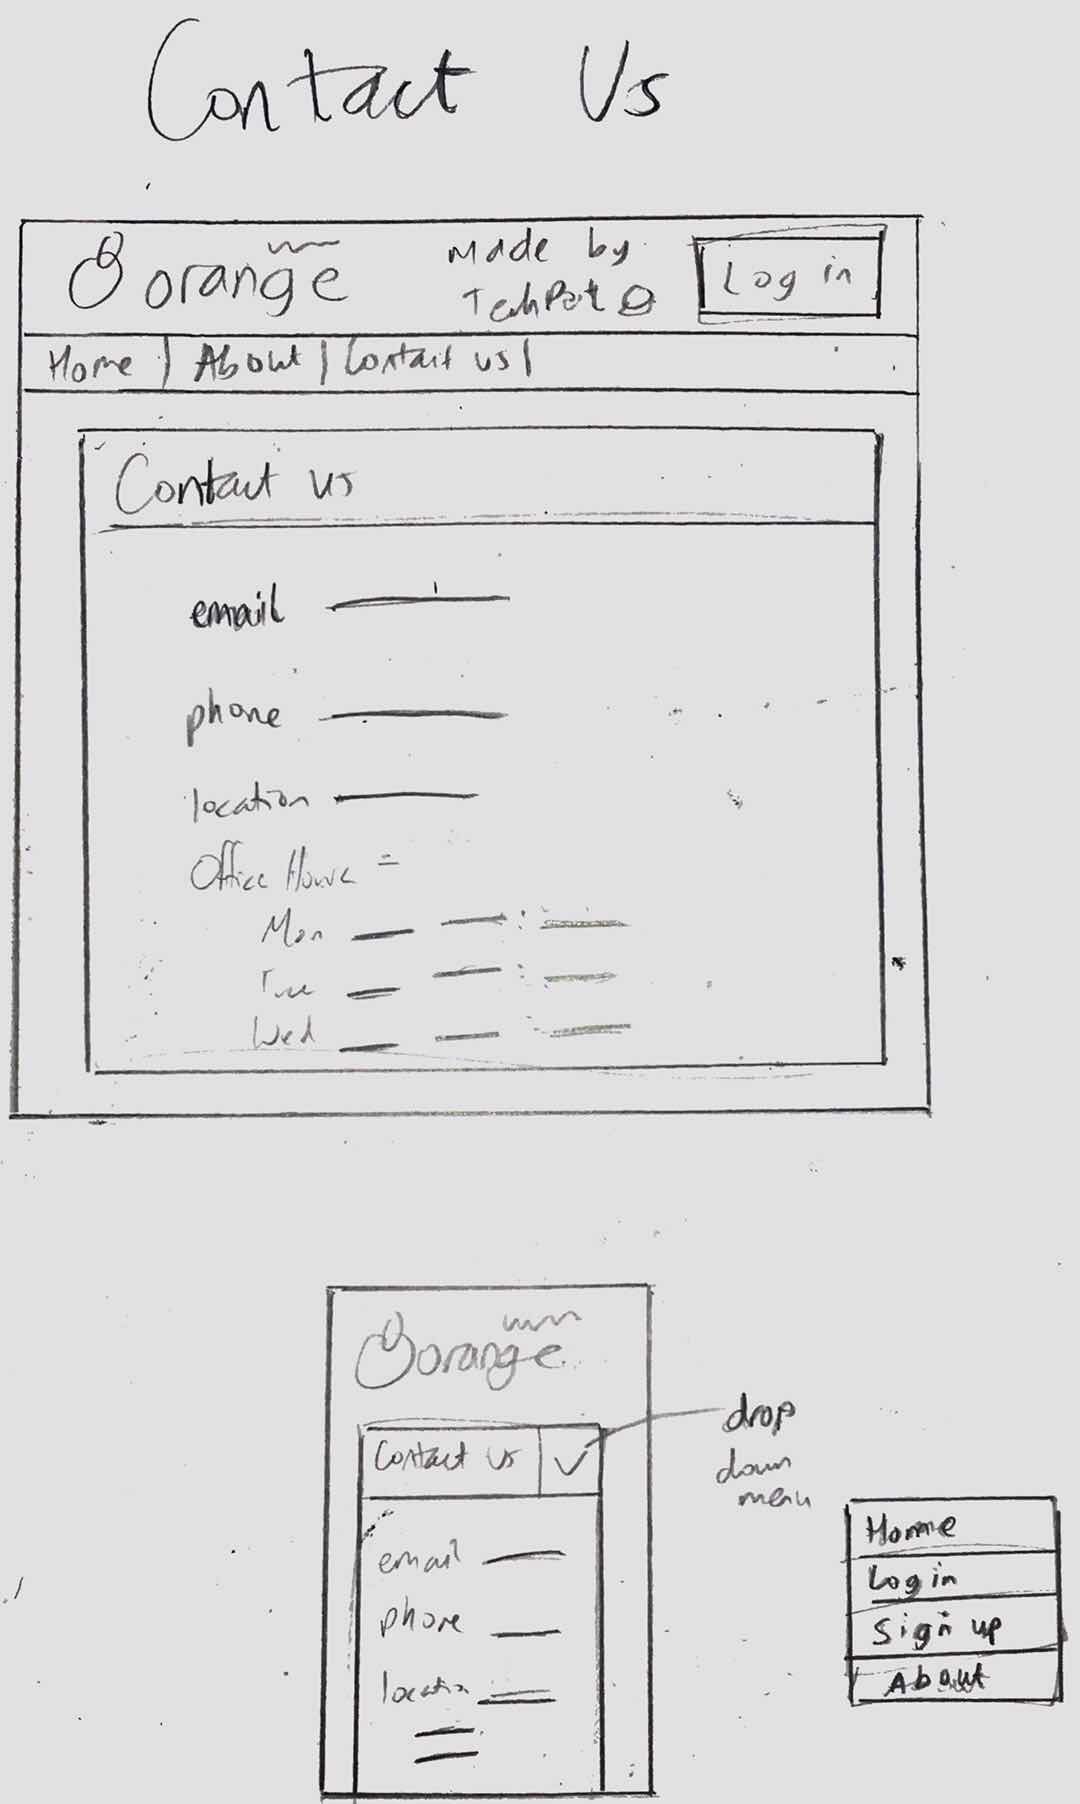 Contact Us
orange
Made by
TechPot
Log in
Home | About | Contact us |
Contact us
email
phone
location
Office Hours
Mon
Tue
Wed
orange
Contact Us
drop
down
menu
email
phone
location
Home
Log in
Sign up
About